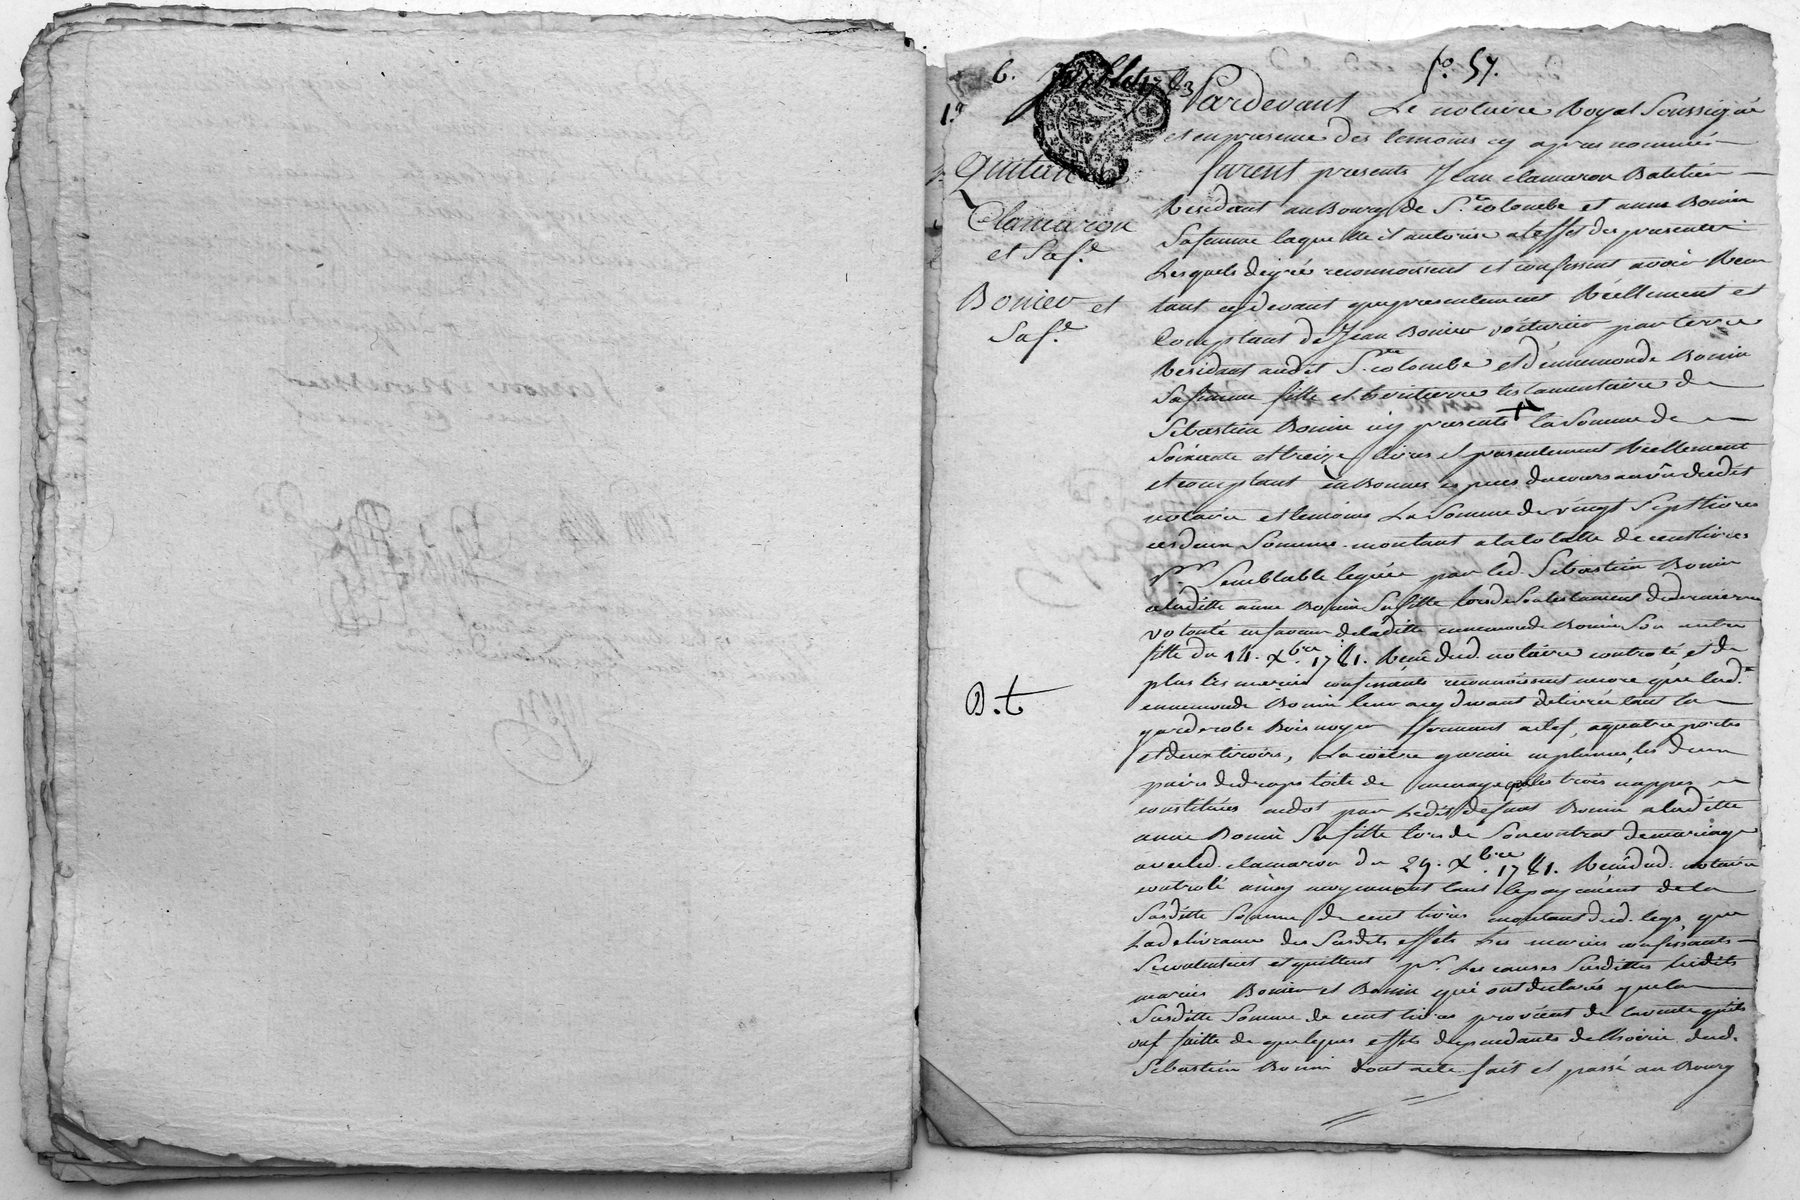 6. juillet 1783
fo. 57.
19
Quittance
Clamaron
et Sa fe.
Bonier et
Sa fe.
D. t
Pardevant Le notaire Royal Soussigné
et en presence des temoins cy apres nommés
furent presents Jean Clamaron Batelier
Residant au Bourg de Ste. colombe et anne Bonin
Sa femme laquelle il autorise a leffet des presentes
Lesquels de gré reconnoissent et confessent avoir Reçu
tant cy devant que presentement Réellement et
Comptant de Jean Bonier voiturier par terre
Residant audit Ste. colombe et d'ennemonde Bonin
Sa femme fille et heritiere testamentaire de
Sebastien Bonin icy presents + la Somme de
Soixante et treize livres et presentement Réellement
et comptant en Bonnes especes du cours au vû dudit
notaire et temoins La Somme de vingt Sept livres
ces deux Sommes montant a la totalle de cent livres
pr. Semblable leguée par led. Sebastien Bonin
a laditte anne Bonin Sa fille lors de Son testament de derniere
volonté en faveur de laditte ennemonde Bonin Son autre
fille du 14. Xbre. 1781. Reçu dud. notaire controlé et de
plus les mariés confessants reconnoissent encore que lade.
ennemonde Bonin leur a cy devant delivré tant la
garderobe Bois noyer fermant a clef, a quatre portes
et deux tiroirs, La coètre garnie en plumes, les deux
pairs de draps toile de menage que les trois nappes
constitués en dot par Ledit defunt Bonin a laditte
anne Bonin Sa fille lors de Son contrat de mariage
avec led. clamaron du 29. Xbre. 1781. Reçu dud. notaire
controlé ainsy moyennant tant le payement de la
Susditte Somme de cent livres montant dud. legs, que
La delivrance des Susdits effets Les mariés confessants
Se contentent et quittent pr. Les causes Susdittes lesdits
mariés Bonier et Bonin qui ont declarés que la
Susditte Somme de cent livres provient de la vente qu'ils
ont faitte de quelques effets dependants de lhoirie dud.
Sebastien Bonin dont acte fait et passé au Bourg